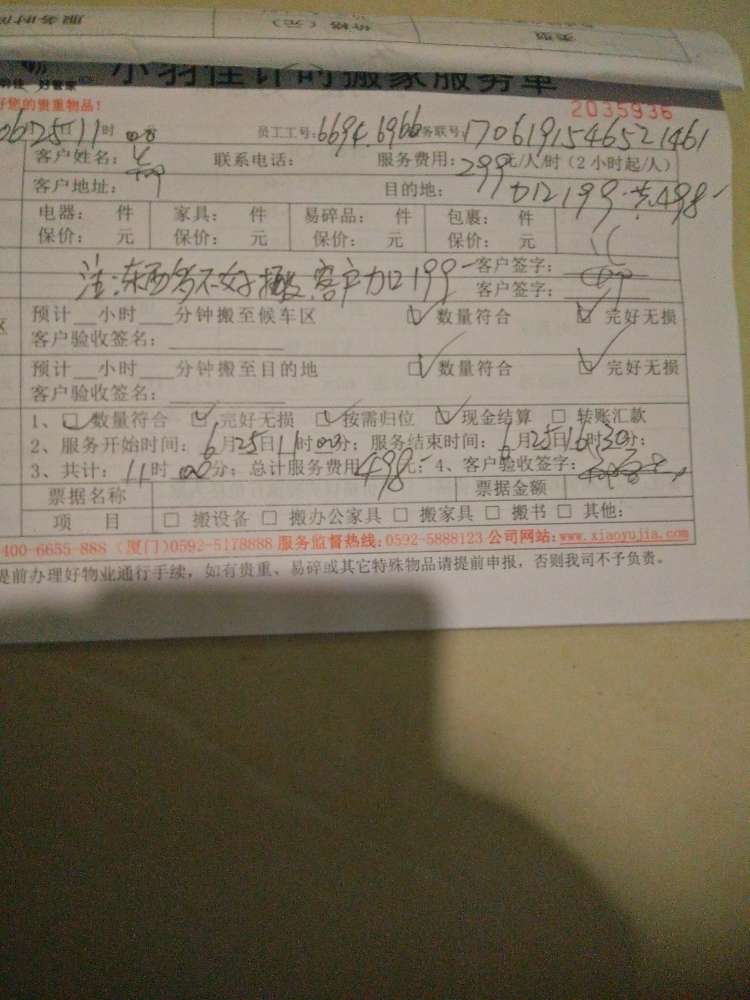 服务时间 价格（元） 类型
小羽佳计时搬家服务单
好管家
好您的贵重物品！
2035936
06 25 11时 00 员工工号：6694.6966 务联号：1706191546521461
客户姓名： 联系电话： 服务费用：299元/人/时（2小时起/人）
客户地址： 目的地： 加199 共498
电器： 件 家具： 件 易碎品： 件 包裹： 件
保价： 元 保价： 元 保价： 元 保价： 元
注：东西多不好搬，客户加199 客户签字：
客户签字：
预计__小时___分钟搬至候车区 ☑数量符合 ☑完好无损
客户验收签名：
预计__小时___分钟搬至目的地 ☑数量符合 ☑完好无损
客户验收签名：
1、☑数量符合 ☑完好无损 ☑按需归位 ☑现金结算 □转账汇款
2、服务开始时间：6月25日11时00分；服务结束时间：6月25日16时30分；
3、共计：11时00分；总计服务费用498元；4、客户验收签字：
票据名称 票据金额
项 目 □搬设备 □搬办公家具 □搬家具 □搬书 □其他：
400-6655-888（厦门）0592-5178888 服务监督热线：0592-5888123 公司网站：www.xiaoyujia.com
提前办理好物业通行手续，如有贵重、易碎或其它特殊物品请提前申报，否则我司不予负责。